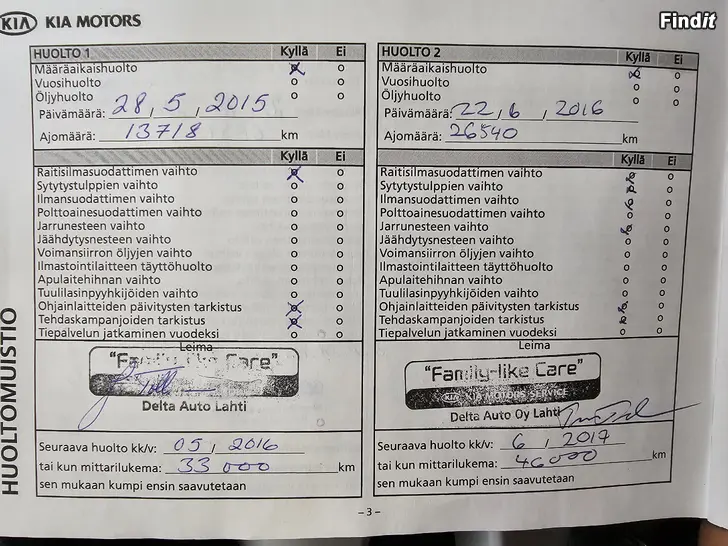 KIA KIA MOTORS
Findit
HUOLTOMUISTIO
HUOLTO 1 Kyllä Ei
Määräaikaishuolto x o
Vuosihuolto o o
Öljyhuolto o o
Päivämäärä: 28, 5, 2015
Ajomäärä: 13718 km
Kyllä Ei
Raitisilmasuodattimen vaihto x o
Sytytystulppien vaihto o o
Ilmansuodattimen vaihto o o
Polttoainesuodattimen vaihto o o
Jarrunesteen vaihto o o
Jäähdytysnesteen vaihto o o
Voimansiirron öljyjen vaihto o o
Ilmastointilaitteen täyttöhuolto o o
Apulaitehihnan vaihto o o
Tuulilasinpyyhkijöiden vaihto o o
Ohjainlaitteiden päivitysten tarkistus x o
Tehdaskampanjoiden tarkistus x o
Tiepalvelun jatkaminen vuodeksi o o
Leima
"Family-like Care"
Delta Auto Lahti
Seuraava huolto kk/v: 05, 2016
tai kun mittarilukema: 33 000 km
sen mukaan kumpi ensin saavutetaan
HUOLTO 2 Kyllä Ei
Määräaikaishuolto x o
Vuosihuolto o o
Öljyhuolto o o
Päivämäärä: 22, 6, 2016
Ajomäärä: 26540 km
Kyllä Ei
Raitisilmasuodattimen vaihto x o
Sytytystulppien vaihto o
Ilmansuodattimen vaihto o
Polttoainesuodattimen vaihto o
Jarrunesteen vaihto x o
Jäähdytysnesteen vaihto o o
Voimansiirron öljyjen vaihto o o
Ilmastointilaitteen täyttöhuolto o o
Apulaitehihnan vaihto o o
Tuulilasinpyyhkijöiden vaihto o o
Ohjainlaitteiden päivitysten tarkistus x o
Tehdaskampanjoiden tarkistus x o
Tiepalvelun jatkaminen vuodeksi o o
Leima
"Family-like Care"
KIA KIA MOTORS SERVICE
Delta Auto Oy Lahti
Seuraava huolto kk/v: 6, 2017
tai kun mittarilukema: 46000 km
sen mukaan kumpi ensin saavutetaan
– 3 –